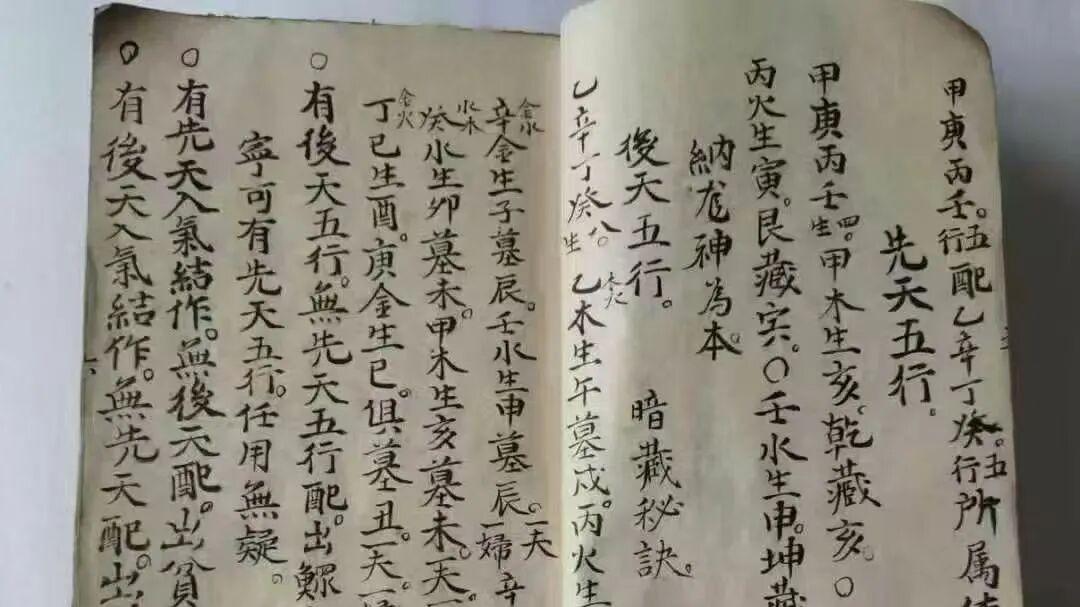 甲庚丙壬。五行配乙辛丁癸。五行所属
先天五行。
甲庚丙壬四生。甲木生亥。乾藏亥。〇
丙火生寅。艮藏寅。〇壬水生申。坤藏
納龙神為本。
後天五行。 暗藏秘訣。
乙辛丁癸八生。木火乙木生午墓戌。丙火生
金水辛金生子墓辰。壬水生申墓辰。一夫一婦辛
水木癸水生卯墓未。甲木生亥墓未。一夫一
金火丁巳生酉。庚金生巳。俱墓丑。一夫一
〇有後天五行。無先天五行配。出鰥
寧可有先天五行。任用無疑。
〇有先天入氣結作。無後天配。出貧
〇有後天入氣結作。無先天配。出
六